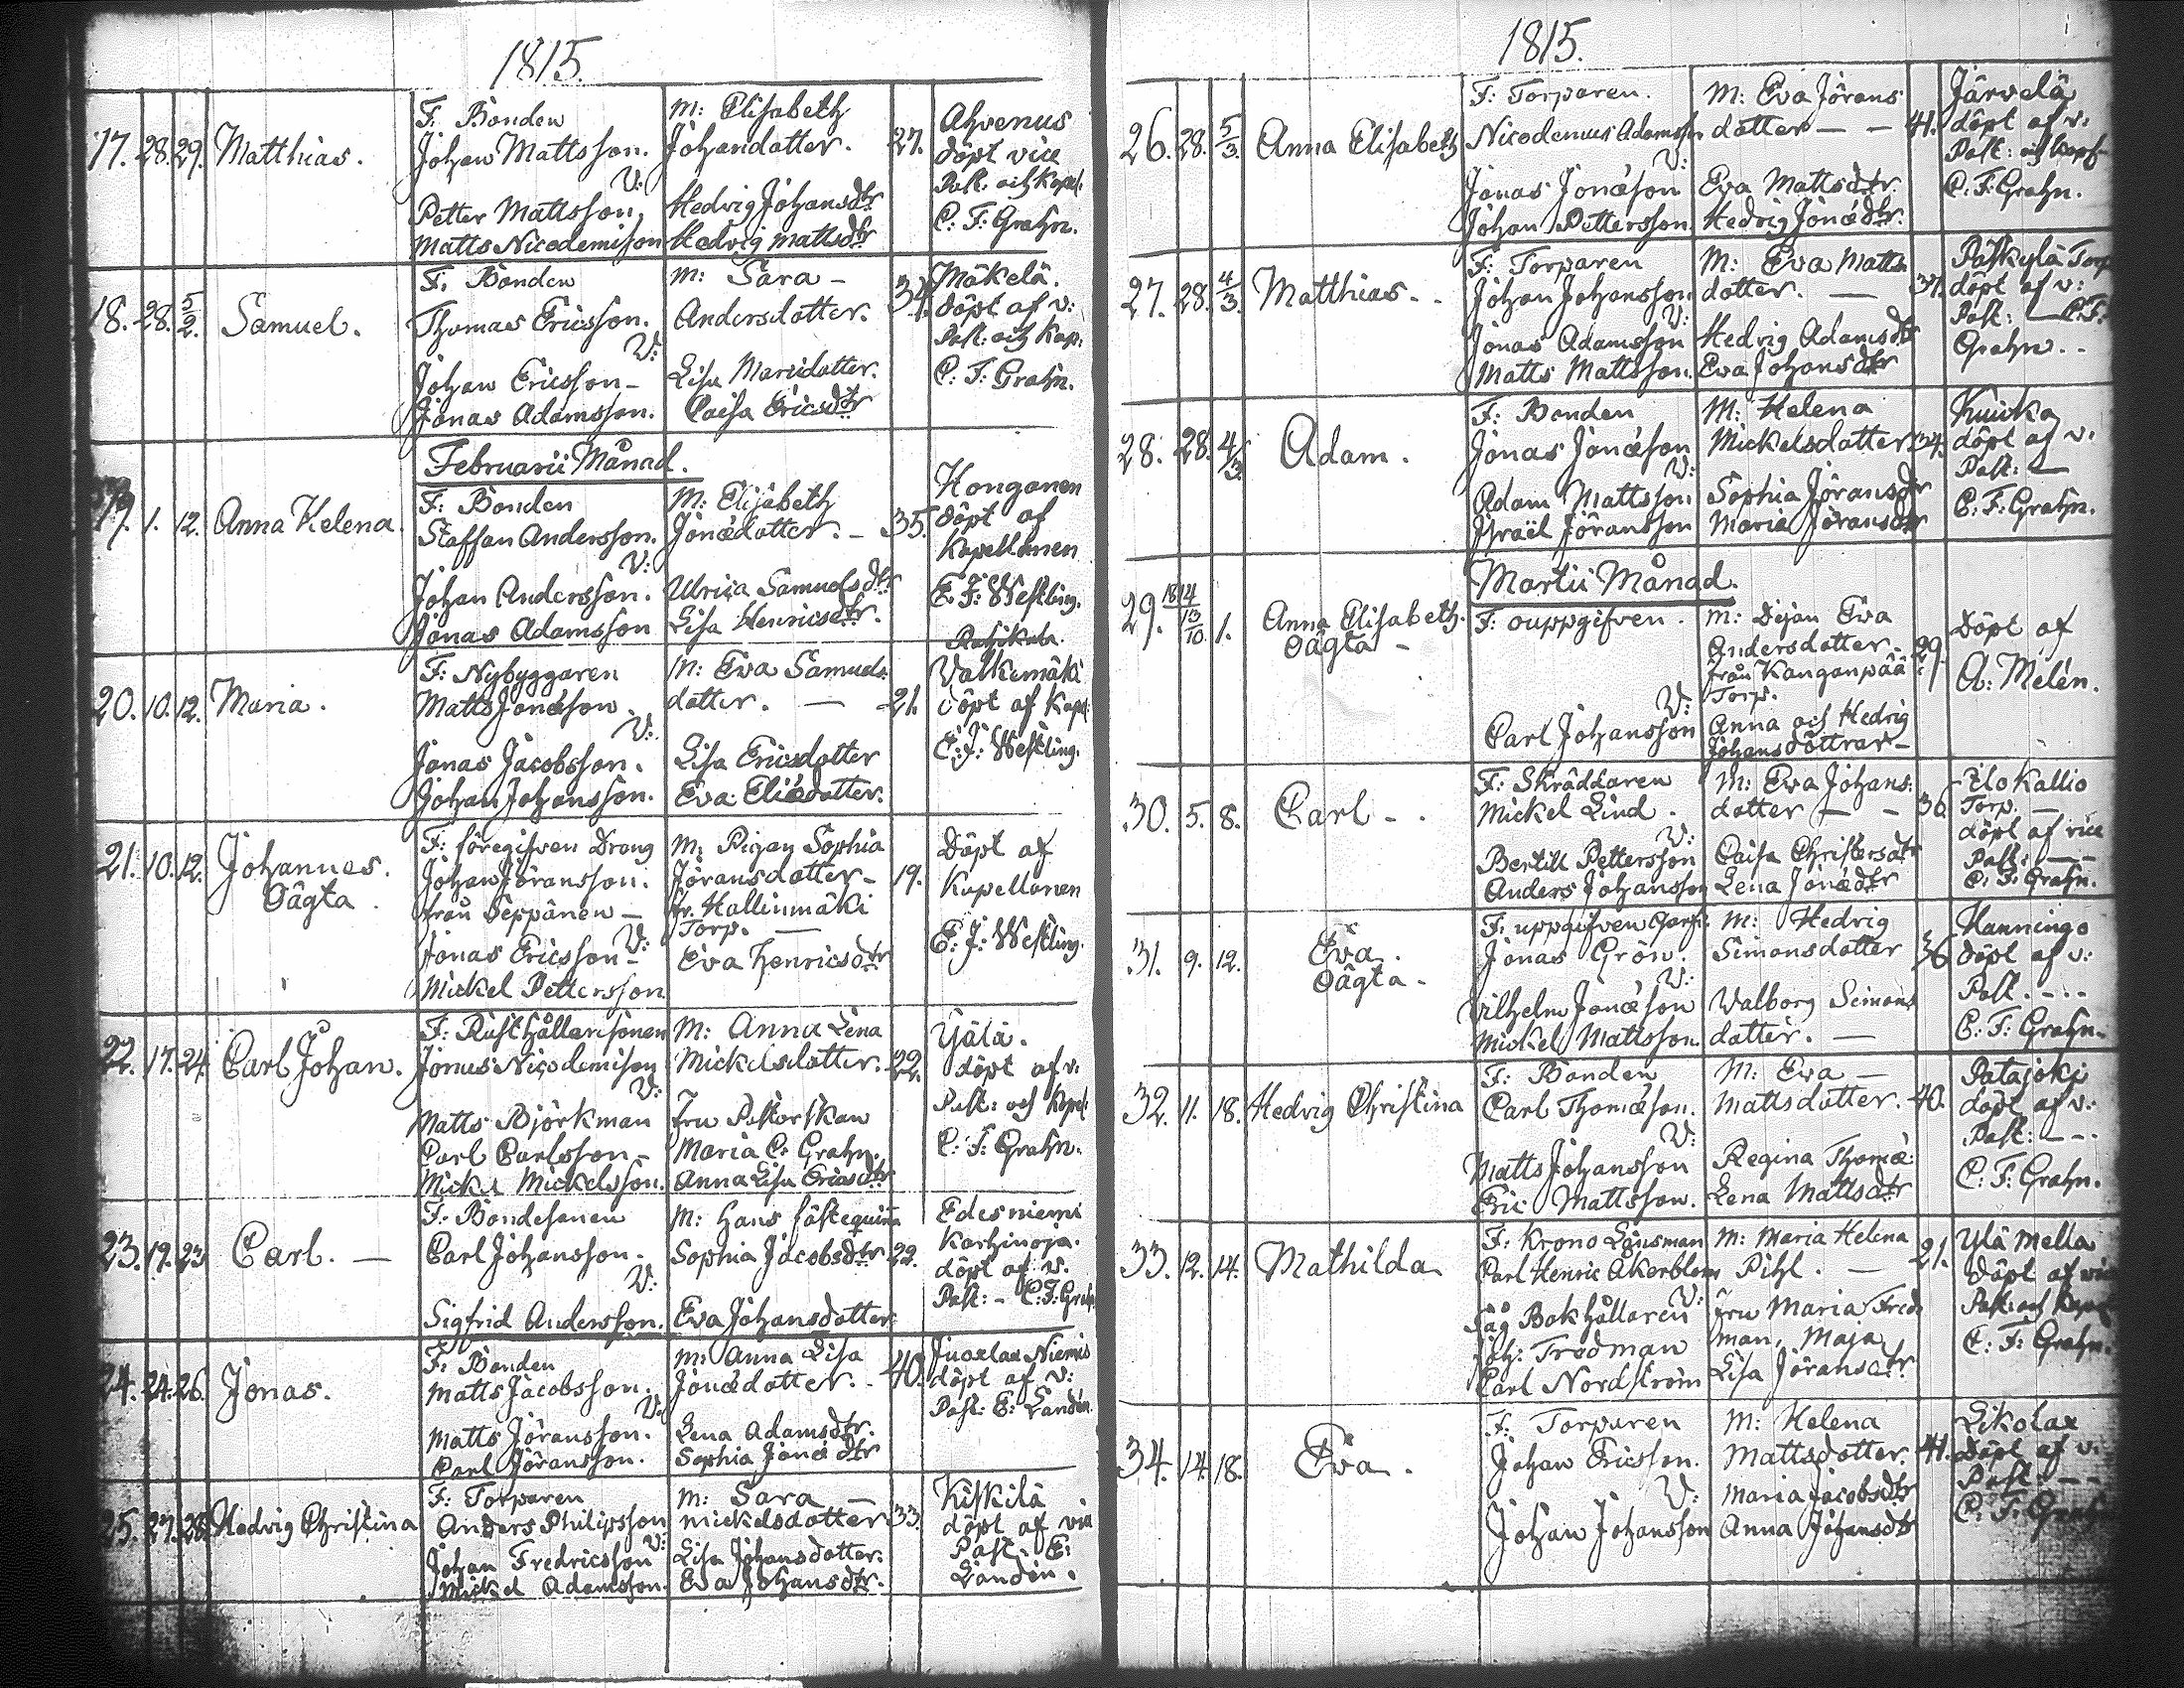 1815.
17. 28. 29. Matthias. F. Bonden M: Elisabeth 27. Ahvenus
Johan Mattsson. Johansdotter. döpt vice
V: Past. och Kapel.
Petter Mattsson, Hedvig Johansdtr C: F: Grahn.
Matts Nicodemisson Hedvig Mattsdtr
18. 28. 5/2. Samuel. F. Bonden M: Sara – 34. Mäkelä.
Thomas Ericsson. Andersdotter. döpt af v:
V: Past: och Kap.
Johan Ericsson – Lisa Mariidotter. C: F: Grahn.
Jonas Adamsson. Caisa Ericsdtr
Februarii Månad.
19. 1. 12. Anna Helena. F. Bonden M: Elisabeth 35. Honganen
Staffan Andersson. Jonædotter. – döpt af
V: Kapellanen
Johan Andersson. Ulrica Samuelsdtr E. J: Westling.
Jonas Adamsson Lisa Henricsdtr.
20. 10. 12. Maria. F: Nybyggaren M: Eva Samuels 21. Valkemäki
Matts Jonæson. dotter. — döpt af Kapel:
V: E: J: Westling.
Jonas Jacobsson. Lisa Ericsdotter
Johan Johansson. Eva Eliædotter.
21. 10. 12. Johannes. Oägta. F: föregifven Dräng M: Pigan Sophia 19. Döpt af
Johan Jöransson. Jöransdotter – Kapellanen
från Seppänen – fr. Hallinmäki
Torp. — E: J: Westling.
Jonas Ericsson V: Eva Henricsdtr
Mickel Pettersson
22. 17. 24. Carl Johan. F: Rusthållaresonen M: Anna Lena 22. Ylälä.
Jonas Nicodemison Mickelsdotter. döpt af v:
V: Past: och Kapel:
Matts Björkman Fru Pastorskan C: F: Grahn.
Carl Carlsson – Maria C: Grahn.
Mickel Mickelsson. Anna Lisa Ericsdtr
23. 19. 23. Carl. — F. Bondesonen M: hans fästeqvinna 22. Edesniemi
Carl Johansson. Sophia Jacobsdtr Karhinoja.
V: döpt af v.
Past: – C: F: Grahn
Sigfrid Andersson. Eva Johansdotter
24. 24. 26. Jonas. F: Bonden M: Anna Lisa 40. Juoxlax Niemis
Matts Jacobsson. Jonædotter. döpt af v:
V: Past: E: Landén.
Matts Jöransson. Lena Adamsdtr.
Carl Jöransson. Sophia Jonædtr
25. 27. 28. Hedvig Christina F: Torparen M: Sara — 33. Kiskilä
Anders Philipsson Mickelsdotter döpt af vice
V: Past. E:
Johan Fredricsson Lisa Johansdotter. Landén.
Mickel Adamsson. Eva Johansdtr.
1815.
26. 28. 5/3. Anna Elisabeth F: Torparen. M: Eva Jörans 41. Järvelä
Nicodemus Adamsson dotter – – döpt af v:
V: Past: och Kapel
Jonas Jonæson Eva Mattsdtr. C: F: Grahn.
Johan Pettersson Hedvig Jonædtr.
27. 28. 4/3. Matthias. F: Torparen M: Eva Matts 37. Torp
Johan Johansson dotter. — döpt af v:
V: Past: — C: F:
Jonas Adamsson Hedvig Adamsdtr Grahn.
Matts Mattsson. Eva Johansdtr
28. 28. 4/3 Adam. F: Bonden M: Helena 34. Knivka
Jonas Jonæson Mickelsdotter döpt af v.
V: Past: —
Adam Mattsson Sophia Jöransdtr C: F: Grahn.
Israël Jöransson Maria Jöransdtr
Martii Månad.
29. 1814 13/10 1. Anna Elisabeth. Oägta – F: ouppgifven. M: Pigan Eva 29. Döpt af
Andersdotter – A: Melén.
från Kanganpää
Torp.
V:
Carl Johansson Anna och Hedvig
Johansdöttrar –
30. 5. 8. Carl – . F: Skräddaren M: Eva Johans: 36. Ilokallio
Mickel Lind. dotter – – Torp. —
V: döpt af vice
Bertill Pettersson Caisa Christersdtr Past: – –
Anders Johansson Lena Jonædtr C: F: Grahn.
31. 9. 12. Eva. Oägta. F: uppgifven M: Hedvig 36. Hanningo
Jonas Grön. Simonsdotter döpt af v:
V: Past. – –
Vilhelm Jonæson Walborg Simons C: F: Grahn.
Mickel Mattsson. dotter. —
32. 11. 18. Hedvig Christina F: Bonden M: Eva — 40. Patajoki
Carl Thomæson. Mattsdotter. döpt af v:
V: Past: – –
Matts Johansson Regina Thomæ: C: F: Grahn.
Eric Mattsson. Lena Mattsdtr
33. 12. 14. Mathilda F: Krono Länsman M: Maria Helena 21. Ylä Mella
Carl Henric Åkerblom Pihl. — Döpt af vice
V: Past: och Kapel
Såg Bokhållaren Fru Maria Frod C: F: Grahn.
Joh: Frodman man, Maja
Carl Nordström Lisa Jöransdtr.
34. 14. 18. Eva. F: Torparen M: Helena 41. Likolax
Johan Ericsson. Mattsdotter. döpt af v:
V: Maria Jacobsdtr Past: – –
Johan Johansson Anna Johansdtr C: F: Grahn